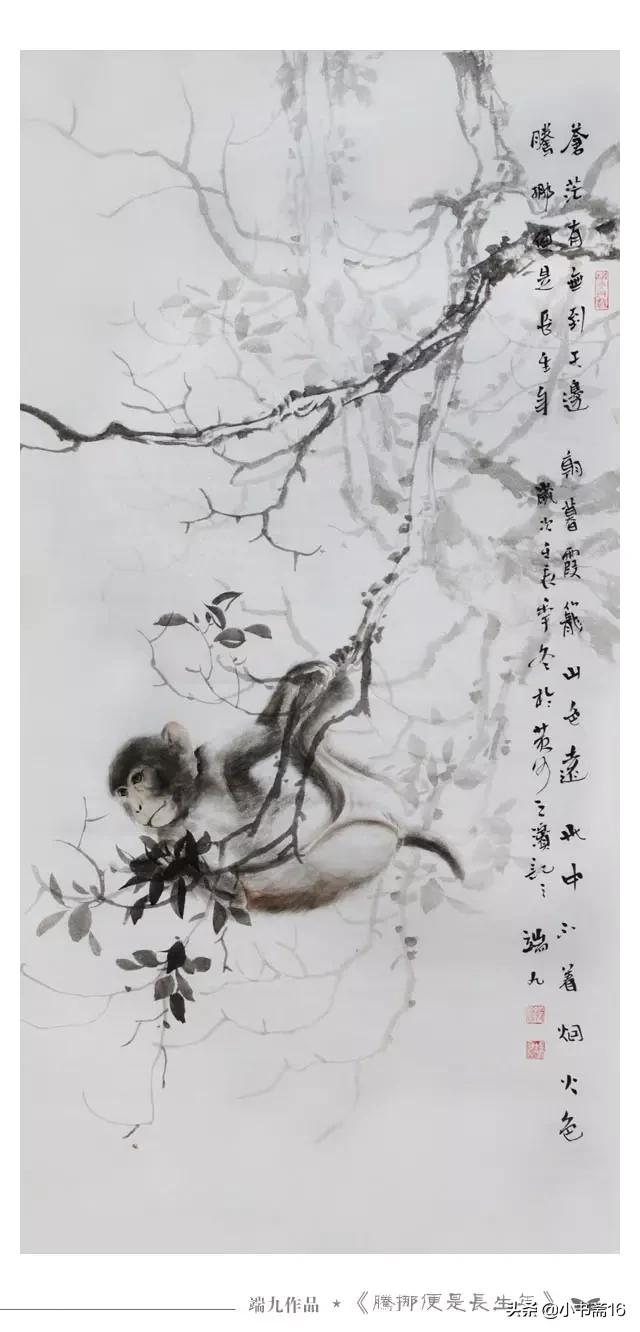 蒼茫有無到天邊 朝暮霞籠山色遠 此中不着烟火色
騰挪便是長生年 歲次壬辰季冬於黄河之濱記之
端九
端九作品 ★ 《騰挪便是長生年》
头条 @小书斋16